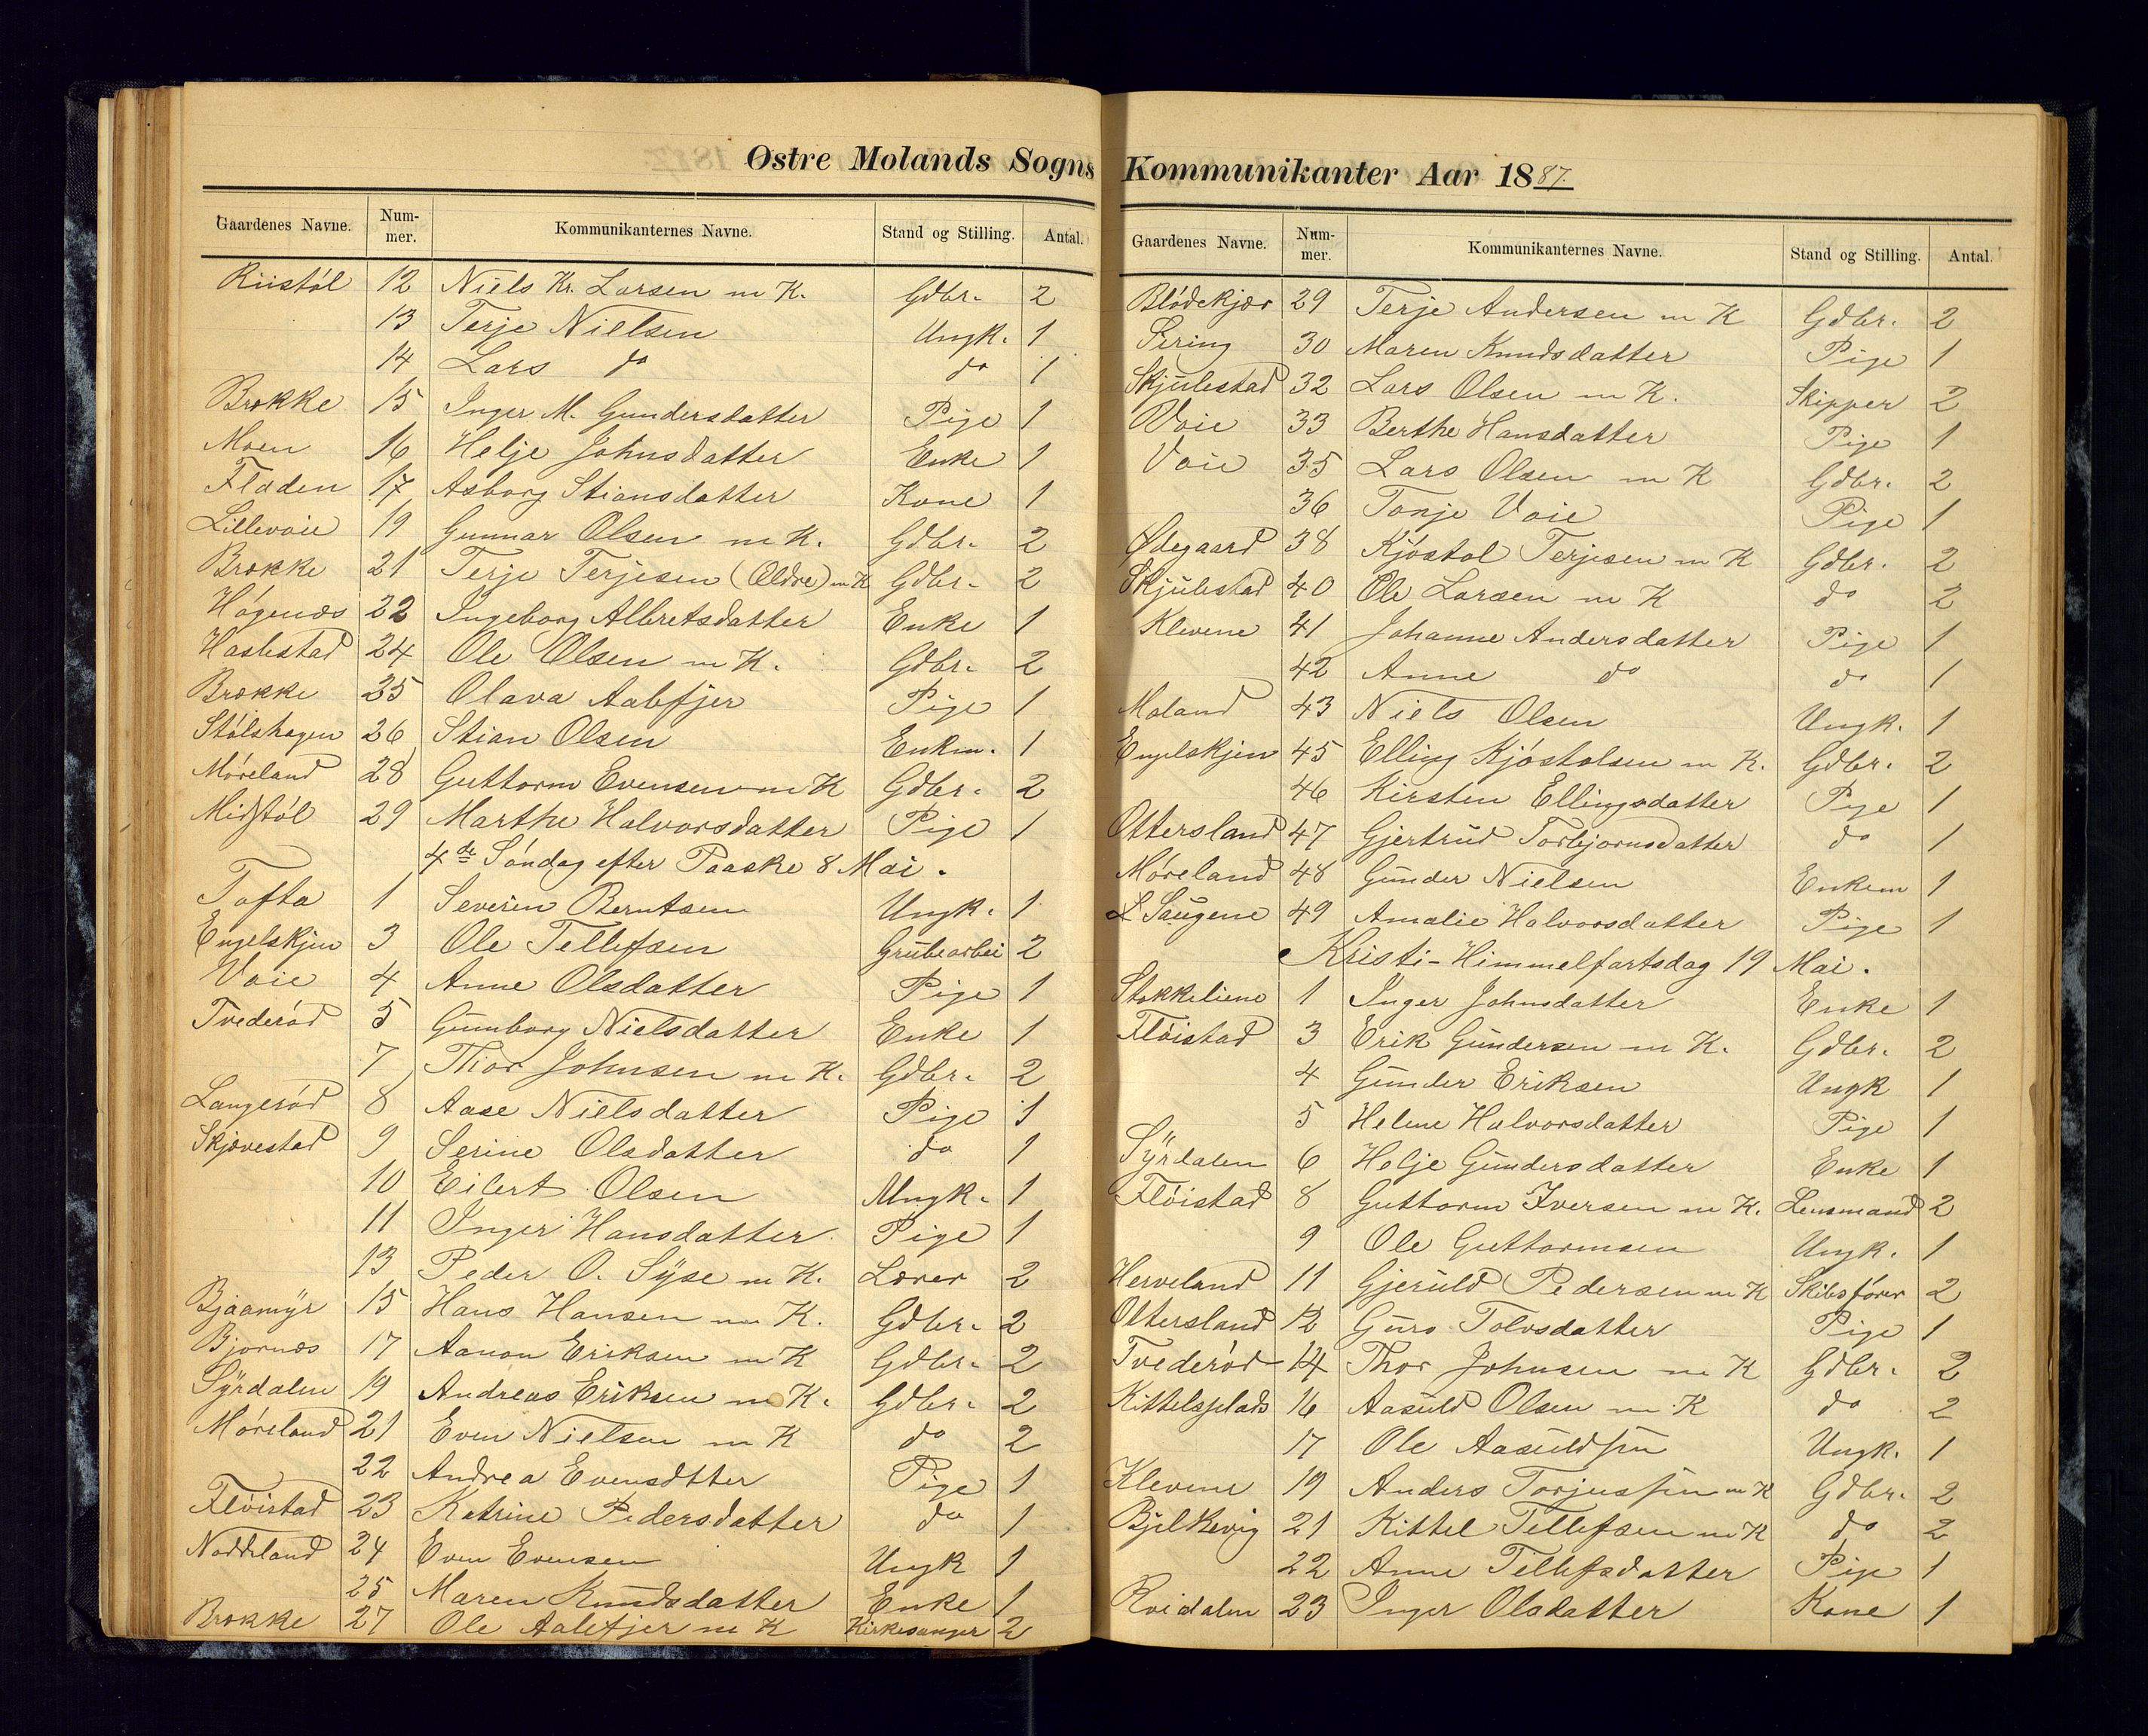 Østre Molands Sogns
Gaardenes Navne. Num-mer. Kommunikanternes Navne. Stand og Stilling. Antal.
Riistöl 12 Niels Kr. Larsen m K. Gdbr. 2
13 Terje Nielsen Ungk. 1
14 Lars do do 1
Brække 15 Inger M. Gundersdatter Pige 1
Moen 16 Helje Johnsdatter Enke 1
Fladen 17 Asborg Stiansdatter Kone 1
Lillevoie 19 Gunnar Olsen m K. Gdbr. 2
Brække 21 Terje Terjesen (Ældre) m K Gdbr. 2
Högenæs 22 Ingeborg Albretsdatter Enke 1
Haslestad 24 Ole Olsen m K. Gdbr. 2
Brække 25 Olava Aalefjer Pige 1
Stölshagen 26 Stian Olsen Enkm. 1
Möreland 28 Guttorm Evensen m K Gdbr. 2
Midtstöl 29 Marthe Halvorsdatter Pige 1
4de Söndag efter Paaske 8 Mai.
Tofta 1 Severin Berntsen Ungk. 1
Engelskjen 3 Ole Tellefsen Grubearbei 2
Voie 4 Anne Olsdatter Pige 1
Tvederöd 5 Gunborg Nielsdatter Enke 1
7 Thor Johnsen m K. Gdbr. 2
Langeröd 8 Aase Nielsdatter Pige 1
Skjævestad 9 Serine Olsdatter do 1
10 Eilert Olsen Ungk. 1
11 Inger Hansdatter Pige 1
13 Peder O. Syse m K. Lærer 2
Bjaamyr 15 Hans Hansen m K. Gdbr. 2
Bjørnæs 17 Aanon Eriksen m K Gdbr. 2
Syrdalen 19 Andreas Eriksen m K. Gdbr. 2
Möreland 21 Even Nielsen m K do 2
22 Andrea Evensdtter Pige 1
Flöistad 23 Katrine Pedersdatter do 1
Noddeland 24 Even Evensen Ungk 1
25 Maren Knudsdatter Enke 1
Brække 27 Ole Aalefjer m K Kirkesanger 2
Kommunikanter Aar 1887.
Gaardenes Navne. Num-mer. Kommunikanternes Navne. Stand og Stilling. Antal.
Blödekjær 29 Terje Andersen m K Gdbr. 2
Sering 30 Maren Knudsdatter Pige 1
Skjulestad 32 Lars Olsen m K. Skipper 2
Voie 33 Berthe Hansdatter Pige 1
Voie 35 Lars Olsen m K Gdbr. 2
36 Tonje Voie Pige 1
Ødegaard 38 Kjöstol Terjesen m K Gdbr. 2
Skjulestad 40 Ole Larsen m K do 2
Klevene 41 Johanne Andersdatter Pige 1
42 Anne do do 1
Moland 43 Niels Olsen Ungk. 1
Engelskjen 45 Elling Kjöstolsen m K. Gdbr. 2
46 Kirsten Ellingsdatter Pige 1
Ottersland 47 Gjertrud Torbjørnsdatter do 1
Möreland 48 Gunder Nielsen Enkem 1
L Saugene 49 Amalie Halvorsdatter Pige 1
Kristi-Himmelfartsdag 19 Mai.
Stokkeliene 1 Inger Johnsdatter Enke 1
Flöistad 3 Erik Gundersen m K. Gdbr. 2
4 Gunder Eriksen Ungk 1
5 Helene Halvorsdatter Pige 1
Syrdalen 6 Helje Gundersdatter Enke 1
Flöistad 8 Guttorm Iversen m K. Lensmand 2
9 Ole Guttormsen Ungk. 1
Herveland 11 Gjeruld Pedersen m K Skibsförer 2
Ottersland 12 Guro Tolvsdatter Pige 1
Tvederöd 14 Thor Johnsen m K Gdbr. 2
Kittelsplads 16 Aasuld Olsen m K do 2
17 Ole Aasuldsen Ungk. 1
Klevene 19 Anders Torjussen m K Gdbr. 2
Bjelkevig 21 Kittel Tellefsen m K do 2
22 Anne Tellefsdatter Pige 1
Röidalen 23 Inger Olsdatter Kone 1